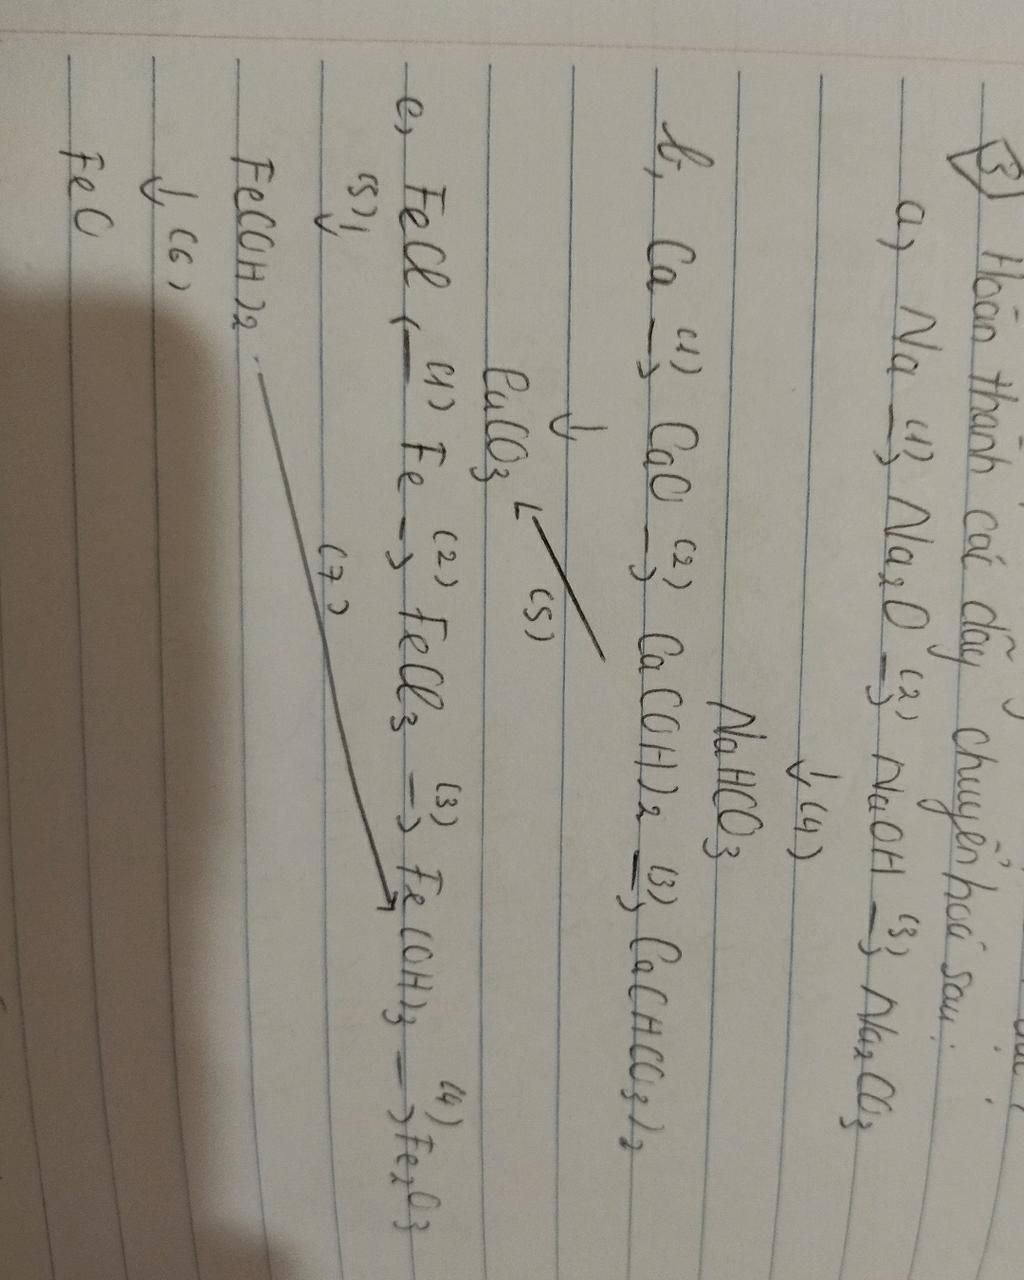 3 Hoàn thành các dãy chuyển hoá sau:
a, Na (1)→ Na2O (2)→ NaOH (3)→ Na2CO3
↓(4)
NaHCO3
b, Ca (1)→ CaO (2)→ Ca(OH)2 (3)→ Ca(HCO3)2
↓ (5)
CaCO3
e, FeCl ←(1) Fe (2)→ FeCl3 (3)→ Fe(OH)3 (4)→ Fe2O3
(5) ↓ (7)
Fe(OH)2
↓ (6)
FeO